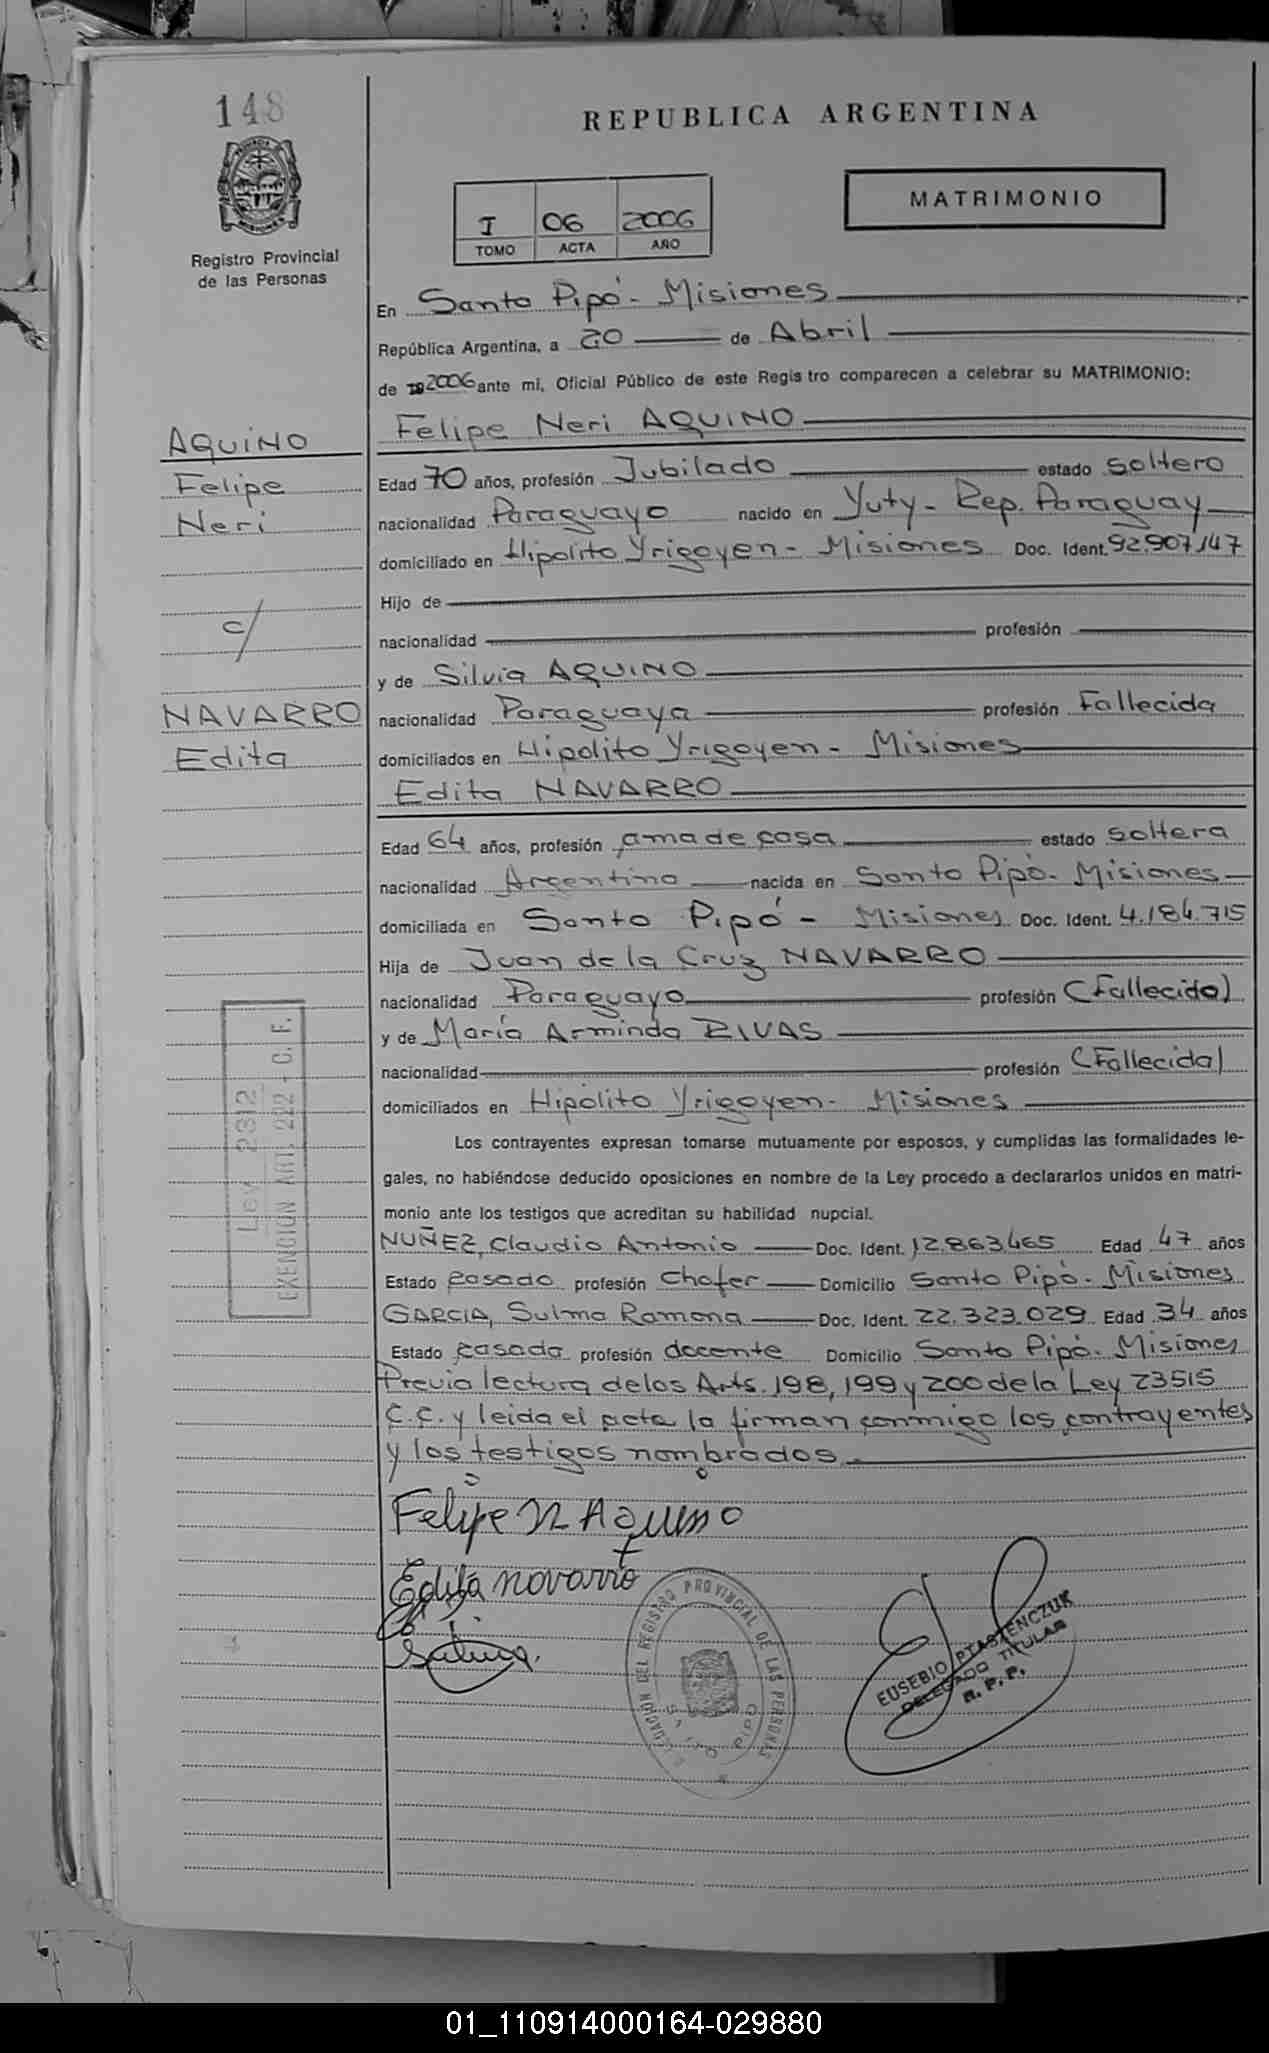 148
Registro Provincial
de las Personas
REPUBLICA ARGENTINA
I 06 2006
TOMO ACTA AÑO
MATRIMONIO
En Santo Pipó - Misiones
República Argentina, a 20 de Abril
de 2006 ante mí, Oficial Público de este Registro comparecen a celebrar su MATRIMONIO:
Felipe Neri AQUINO
AQUINO
Felipe
Neri
c/
NAVARRO
Edita
Edad 70 años, profesión Jubilado estado soltero
nacionalidad Paraguayo nacido en Yuty - Rep. Paraguay
domiciliado en Hipolito Yrigoyen - Misiones Doc. Ident. 92.907.147
Hijo de
nacionalidad profesión
y de Silvia AQUINO
nacionalidad Paraguaya profesión Fallecida
domiciliados en Hipolito Yrigoyen - Misiones
Edita NAVARRO
Edad 64 años, profesión ama de casa estado soltera
nacionalidad Argentina nacida en Santo Pipó - Misiones
domiciliada en Santo Pipó - Misiones Doc. Ident. 4.184.715
Hija de Juan de la Cruz NAVARRO
nacionalidad Paraguayo profesión (Fallecido)
y de María Arminda RIVAS
nacionalidad profesión (Fallecida)
domiciliados en Hipolito Yrigoyen - Misiones
Ley 2312
EXENCION ART. 222 - C. F.
Los contrayentes expresan tomarse mutuamente por esposos, y cumplidas las formalidades le-
gales, no habiéndose deducido oposiciones en nombre de la Ley procedo a declararlos unidos en matri-
monio ante los testigos que acreditan su habilidad nupcial.
NUÑEZ, Claudio Antonio Doc. Ident. 12.863.465 Edad 47 años
Estado casado profesión Chofer Domicilio Santo Pipó - Misiones
GARCIA, Sulma Ramona Doc. Ident. 22.323.029 Edad 34 años
Estado casada profesión docente Domicilio Santo Pipó - Misiones
Previa lectura de los Arts. 198, 199 y 200 de la Ley 23515
C.C. y leida el acta la firman conmigo los contrayentes
y los testigos nombrados
Felipe N Aquino
Edita navarro
DEL REGISTRO PROVINCIAL DE LAS PERSONAS
SANTO PIPO
EUSEBIO PTASZENCZUK
DELEGADO TITULAR
R. P. P.
01_110914000164-029880